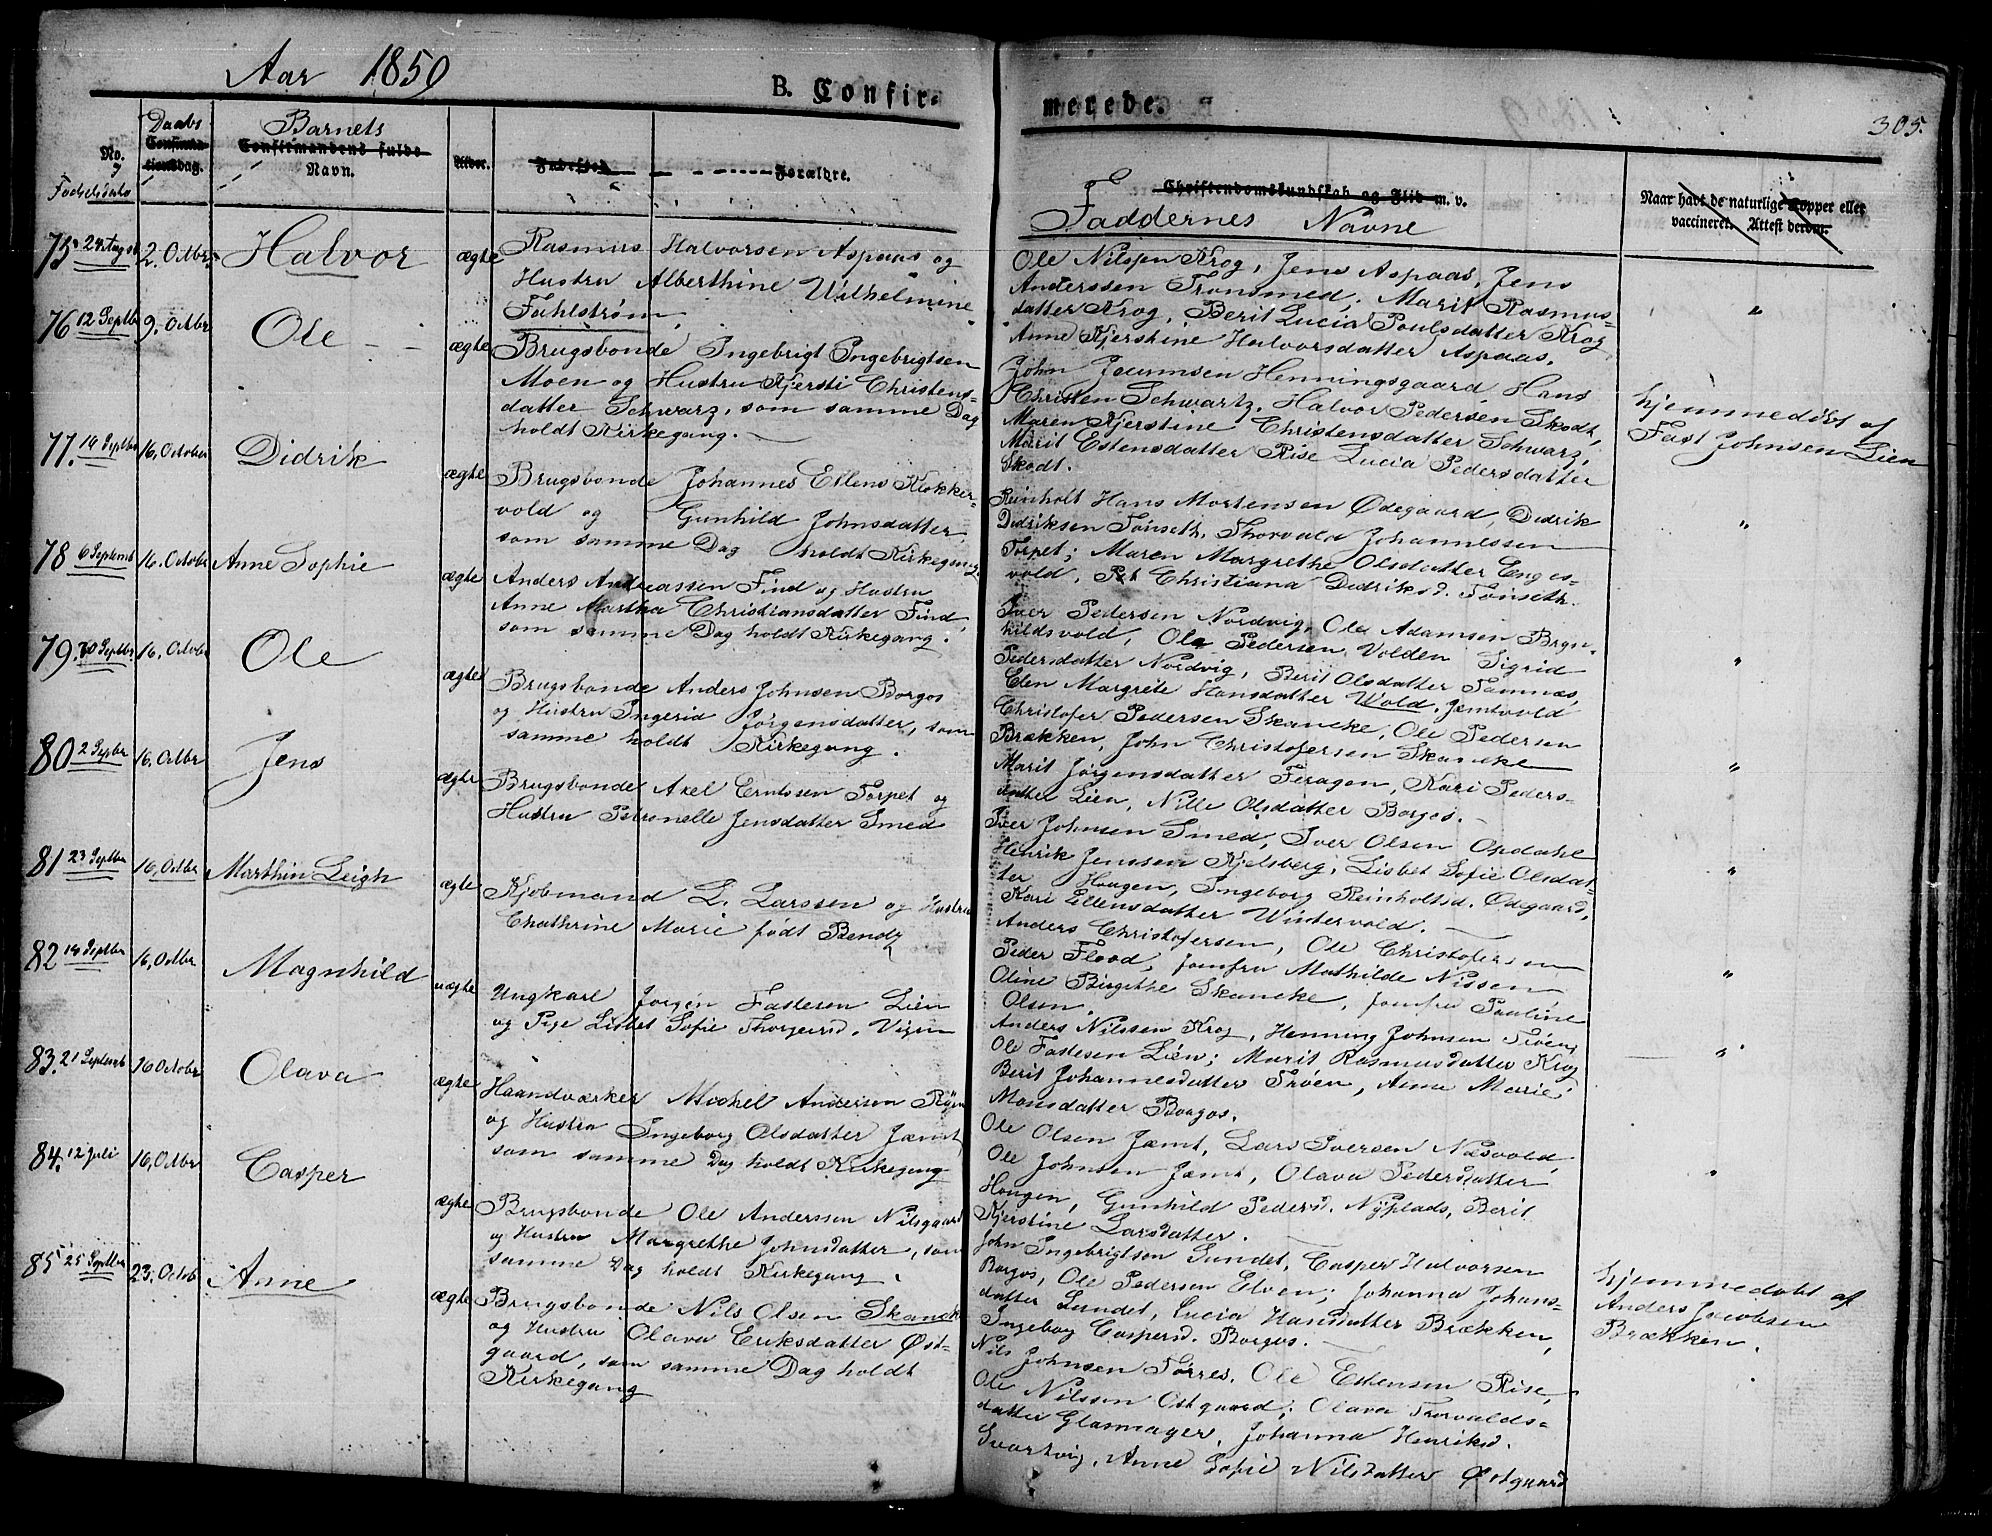 Aar 1859
B. Confir-
merede.
305.
No.
Fødselsdato
Daabs
Confirma-
tionsdag.
Barnets
Confirmandens fulde
Navn.
Alder.
Fødested
Forældre.
Christendomskundskab og Flid m. v.
Faddernes Navne
Naar havt de naturlige Kopper eller
vaccineret. Attest derom.
75 24 August 2. Octbr. Halvor ægte
Rasmus Halvorsen Aspaas og
Hustru Alberthine Wilhelmine
Fahlstrøm
Ole Nilsen Krog, Jens Aspaas, Jens
Anderssen Tronsmed, Marit Rasmus-
datter Krog, Berit Lucia Poulsdatter Krog
Anne Kjerstine Halvorsdatter Aspaas.
"
76 12 Septbr 9. Octbr Ole ægte
Brugsbonde Ingebrigt Ingebrigtsen
Moen og Hustru Kjersti Christens-
datter Schwarz, som samme Dag
holdt Kirkegang.
John Henningsgaard, Hans
Christen Schwartz, Halvor Pedersen Skodt,
Maren Kjerstine Christensdatter Schwarz,
Marit Estensdatter Rise Lucia Pedersdatter
Skodt.
hjemmedøbt af
Fast Johnsen Lien
77. 14 Septbr 16, October Didrik ægte
Brugsbonde Johannes Ellens Klokker-
vold og Gunhild Johnsdatter
som samme Dag holdt Kirkegang
Reinholt Hans Mortensen Ødegaard, Didrik
Didriksen Tønseth, Thorvald Johannessen
Torpet; Maren Margrethe Olsdatter Enges-
vold, Christiana Didriksd. Tønseth.
"
78 6 Septemb 16. October Anne Sophie ægte
Anders Andreassen Find og Hustru
Anne Martha Christiansdatter Find,
som samme Dag holdt Kirkegang.
Iver Pedersen Nordvig, Ole Adamsen Bryn-
hildsvold, Ole Pedersen Volden Sigrid
Pedersdatter Nordvig, Berit Olsdatter Tamnæs,
Elen Margrete Hansdatter Wold. Jemtvold
"
79. 10 Septbr 16, Octobr Ole ægte
Brugsbonde Anders Johnsen Borgos
og Hustru Ingerid Jørgensdatter, som
samme holdt Kirkegang.
Christofer Pedersen Skancke, Ole Pedersen
Brækken, John Christofersen Skancke
Marit Jørgensdatter Feragen, Kari Peders-
datter Lien, Nille Olsdatter Borgos.
"
80 2 Septbr 16. Octbr Jens ægte
Brugsbonde Axel Erntssen Torpet og
Hustru Petronelle Jensdatter Smed
Iver Johnsen Smed, Iver Olsen Opdahl
Henrik Jenssen Kjelsberg, Lisbet Sofie Olsdat-
ter Hougen, Ingeborg Reinholtsd. Ødgaard,
Kari Ellensdatter Wintervold.
"
81 23 Septbr 16, Octbr Marthin Leigh ægte
Kjøbmand L. Larssen og Hustru
Chathrine Marie født Bendz
Anders Christofersen, Ole Christofersen
Peder Flood, Jomfru Mathilde Nissen
Oline Birgithe Skancke, Jomfru Pauline
Olsen.
"
82 14 Septbr 16, Octbr Magnhild uægte
Ungkarl Jørgen Fastesen Lien
og Pige Lisbet Sofie Thorgersd. Vigen
Anders Nilssen Krog, Henning Johnsen Trøen,
Ole Fastesen Lien; Marit Rasmusdatter Krog
Berit Johannesdatter Trøen, Anne Marie
Monsdatter Borgos.
"
83. 21 Septemb 16 October Olava ægte
Haandværker Mickel Andersen Ryen
og Hustru Ingeborg Olsdatter Jæmt,
som samme Dag holdt Kirkegang
Ole Olsen Jæmt, Lars Iversen Næsvold,
Ole Johnsen Jæmt, Olava Pedersdatter
Hougen, Gunhild Pedersd. Nyplads, Berit
Kjerstine Larsdatter.
"
84. 12 Juli 16, Octbr Casper ægte
Brugsbonde Ole Anderssen Nilsgaard
og Hustru Margrethe Johnsdatter, som
samme Dag holdt Kirkegang.
John Ingebrigtsen Sundet, Casper Halvorsen
Borgos, Ole Pedersen Elven; Johanna Johans-
datter Sundet, Lucia Hansdatter Brækken,
Ingeborg Caspersd. Borgos.
hjemmedøbt af
Anders Jacobsen
Brækken.
85 25 Septbr 23. Octob Anne ægte
Brugsbonde Nils Olsen Skanck
og Hustru Olava Eriksdatter Øst-
gaard, som samme Dag holdt
Kirkegang
Nils Johnsen Torres, Ole Estensen Rise,
Ole Nilssen Østgaard; Olava Thorvalds-
datter Glasmager, Johanna Henriksd.
Svartvig, Anne Sofie Nilsdatter Østgaard